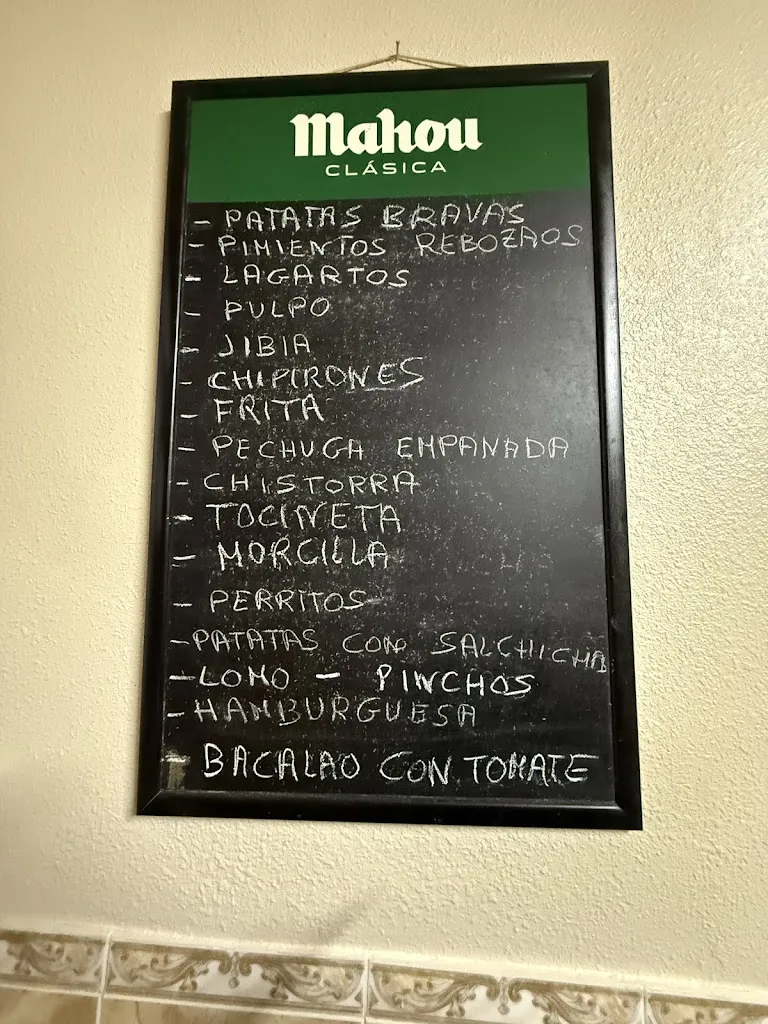 Mahou
CLÁSICA
- PATATAS BRAVAS
- PIMIENTOS REBOZAOS
- LAGARTOS
- PULPO
- JIBIA
- CHIPIRONES
- FRITA
- PECHUGA EMPANADA
- CHISTORRA
- TOCINETA
- MORCILLA
- PERRITOS
- PATATAS CON SALCHICHA
- LOMO - PINCHOS
- HAMBURGUESA
BACALAO CON TOMATE